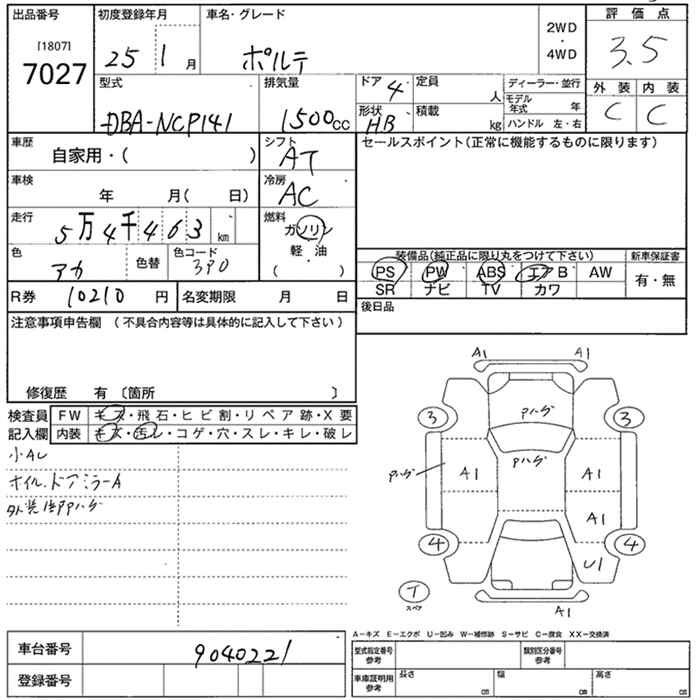 出品番号 初度登録年月 車名・グレード 2WD・4WD 評価点
[1807]
7027 25 1月 ポルテ 3.5
型式 排気量 ドア 4 定員 人 ディーラー・並行 外装 内装
DBA-NCP141 1500cc 形状 HB 積載 kg モデル年式 年 C C
ハンドル 左・右
車歴 シフト セールスポイント(正常に機能するものに限ります)
自家用・( ) AT
車検 冷房
年 月( 日) AC
走行 燃料
5万4千463 km ガソリン
軽・油
( )
色 色替 色コード
アカ 3P0
装備品(純正品に限り丸をつけて下さい) 新車保証書
PS PW ABS エアB AW 有・無
SR ナビ TV カワ
R券 10210円 名変期限 月 日 後日品
注意事項申告欄 (不具合内容等は具体的に記入して下さい)
修復歴 有 〔箇所 〕
検査員 FW キズ・飛石・ヒビ割・リペア跡・X要
記入欄 内装 キズ・汚レ・コゲ・穴・スレ・キレ・破レ
小AU
ホイル.ドアミラーA
外装借PPハゲ
A1 A1
3 Pハゲ 3
Pハゲ
Pハゲ A1 A1
A1
4 4
U1
T
スペア
A1
A-キズ E-エクボ U-凹み W-補修跡 S-サビ C-腐食 XX-交換済
車台番号 9040221
型式指定番号 参考 類別区分番号 参考
登録番号
車庫証明用 参考 長さ cm 幅 cm 高さ cm